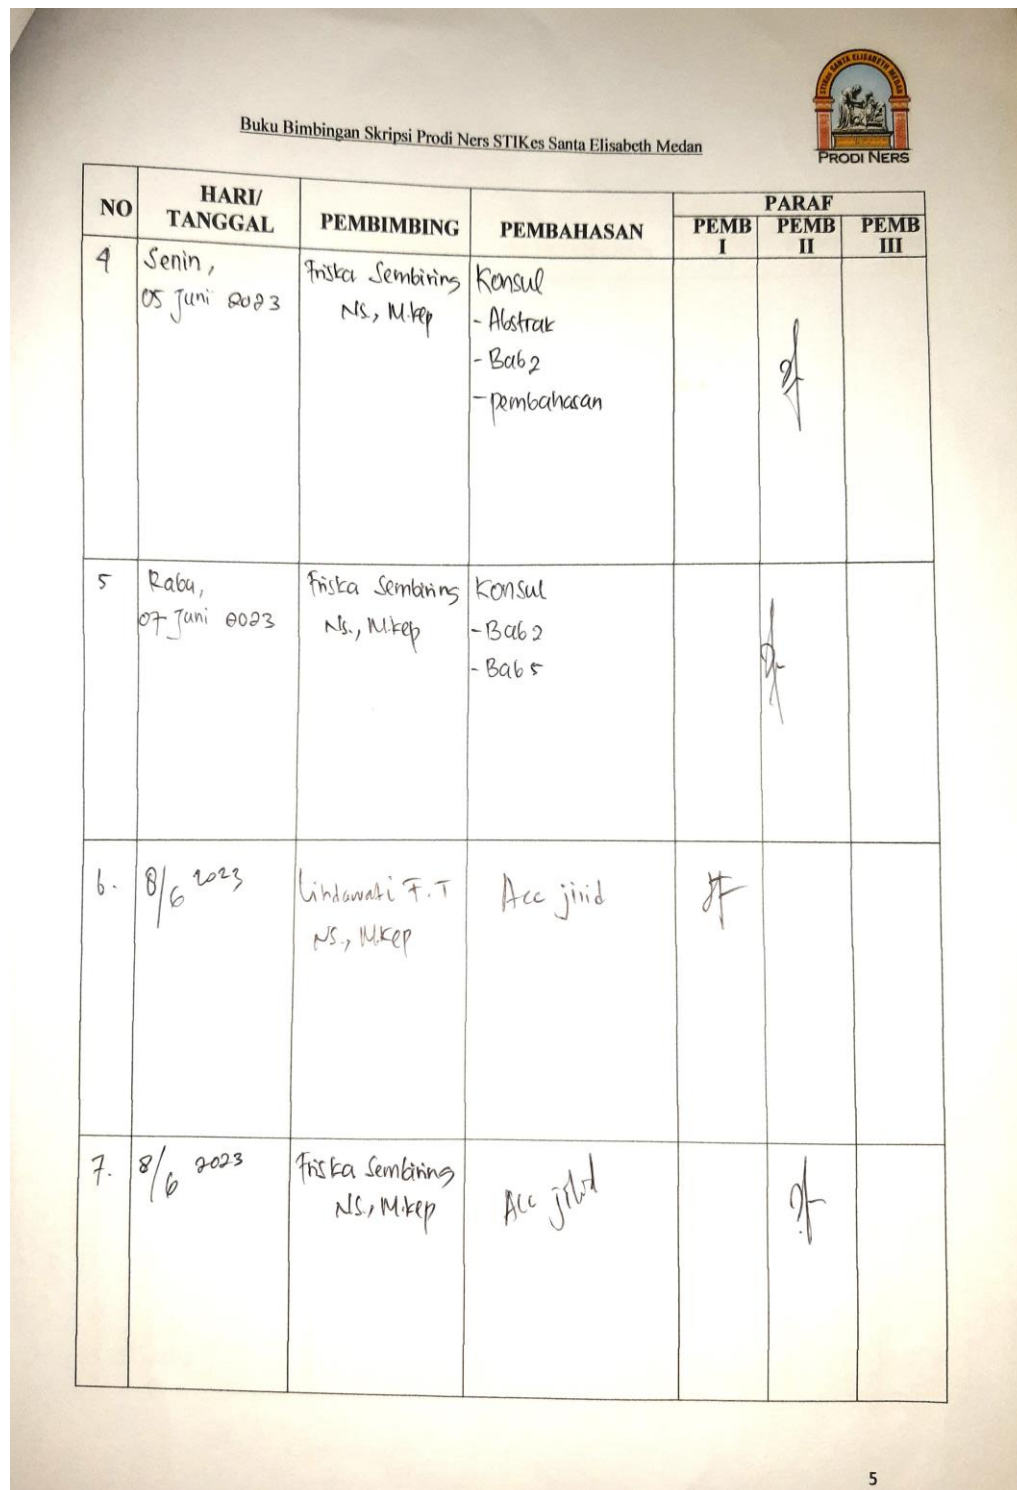 STIKes SANTA ELISABETH MEDAN
PRODI NERS
Buku Bimbingan Skripsi Prodi Ners STIKes Santa Elisabeth Medan
NO
HARI/
TANGGAL
PEMBIMBING
PEMBAHASAN
PARAF
PEMB
I
PEMB
II
PEMB
III
4
Senin,
05 Juni 2023
Friska Sembiring
NS., M.kep
Konsul
- Abstrak
- Bab 2
- pembahasan
5
Rabu,
07 Juni 2023
Friska Sembiring
Ns., M.kep
Konsul
- Bab 2
- Bab 5
6.
8/6 2023
Lindawati F.T
NS., M.Kep
Acc jilid
7.
8/6 2023
Friska Sembiring
NS., M.kep
Acc jilid
5